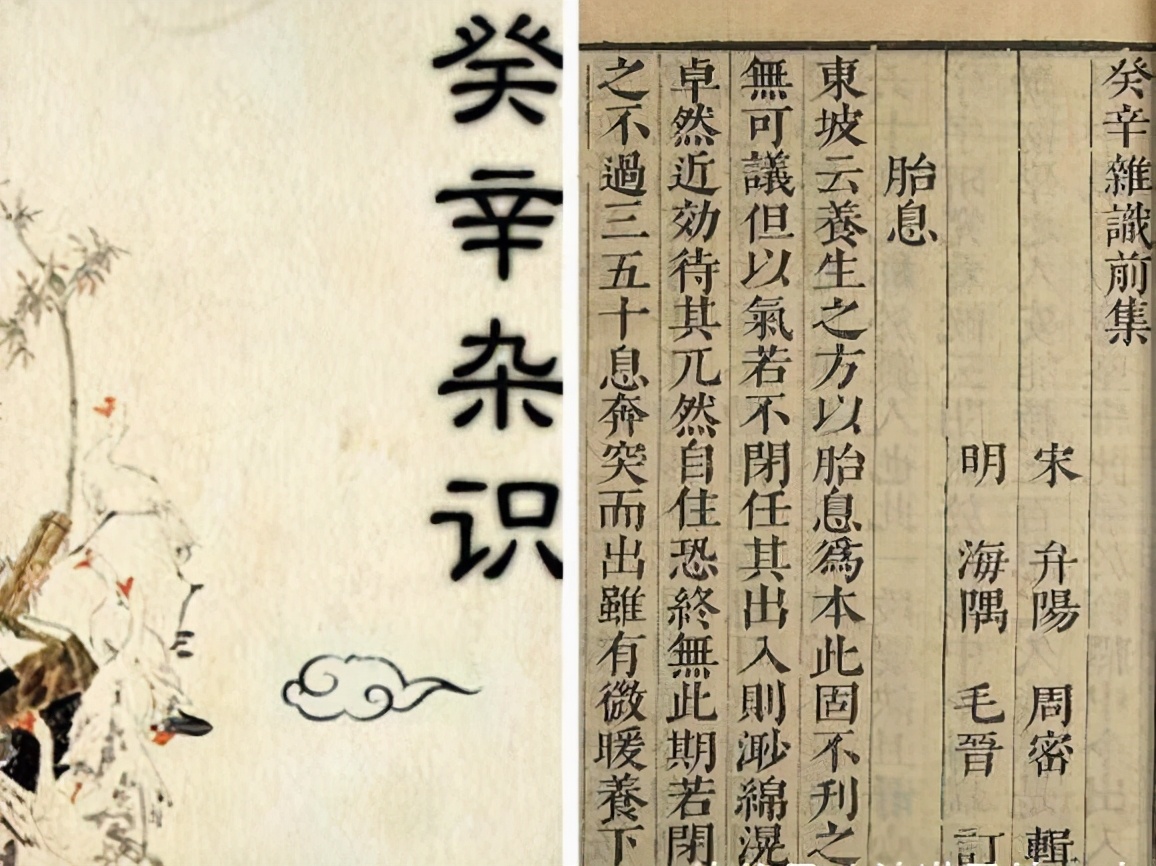 癸辛杂识
癸辛雜識前集
宋 弁陽 周密 輯
明 海隅 毛晉 訂
胎息
東坡云養生之方以胎息爲本此固不刋之
無可議但以氣若不閉任其出入則渺綿滉
卓然近効待其兀然自住恐終無此期若閉
之不過三五十息奔突而出雖有微暖養下